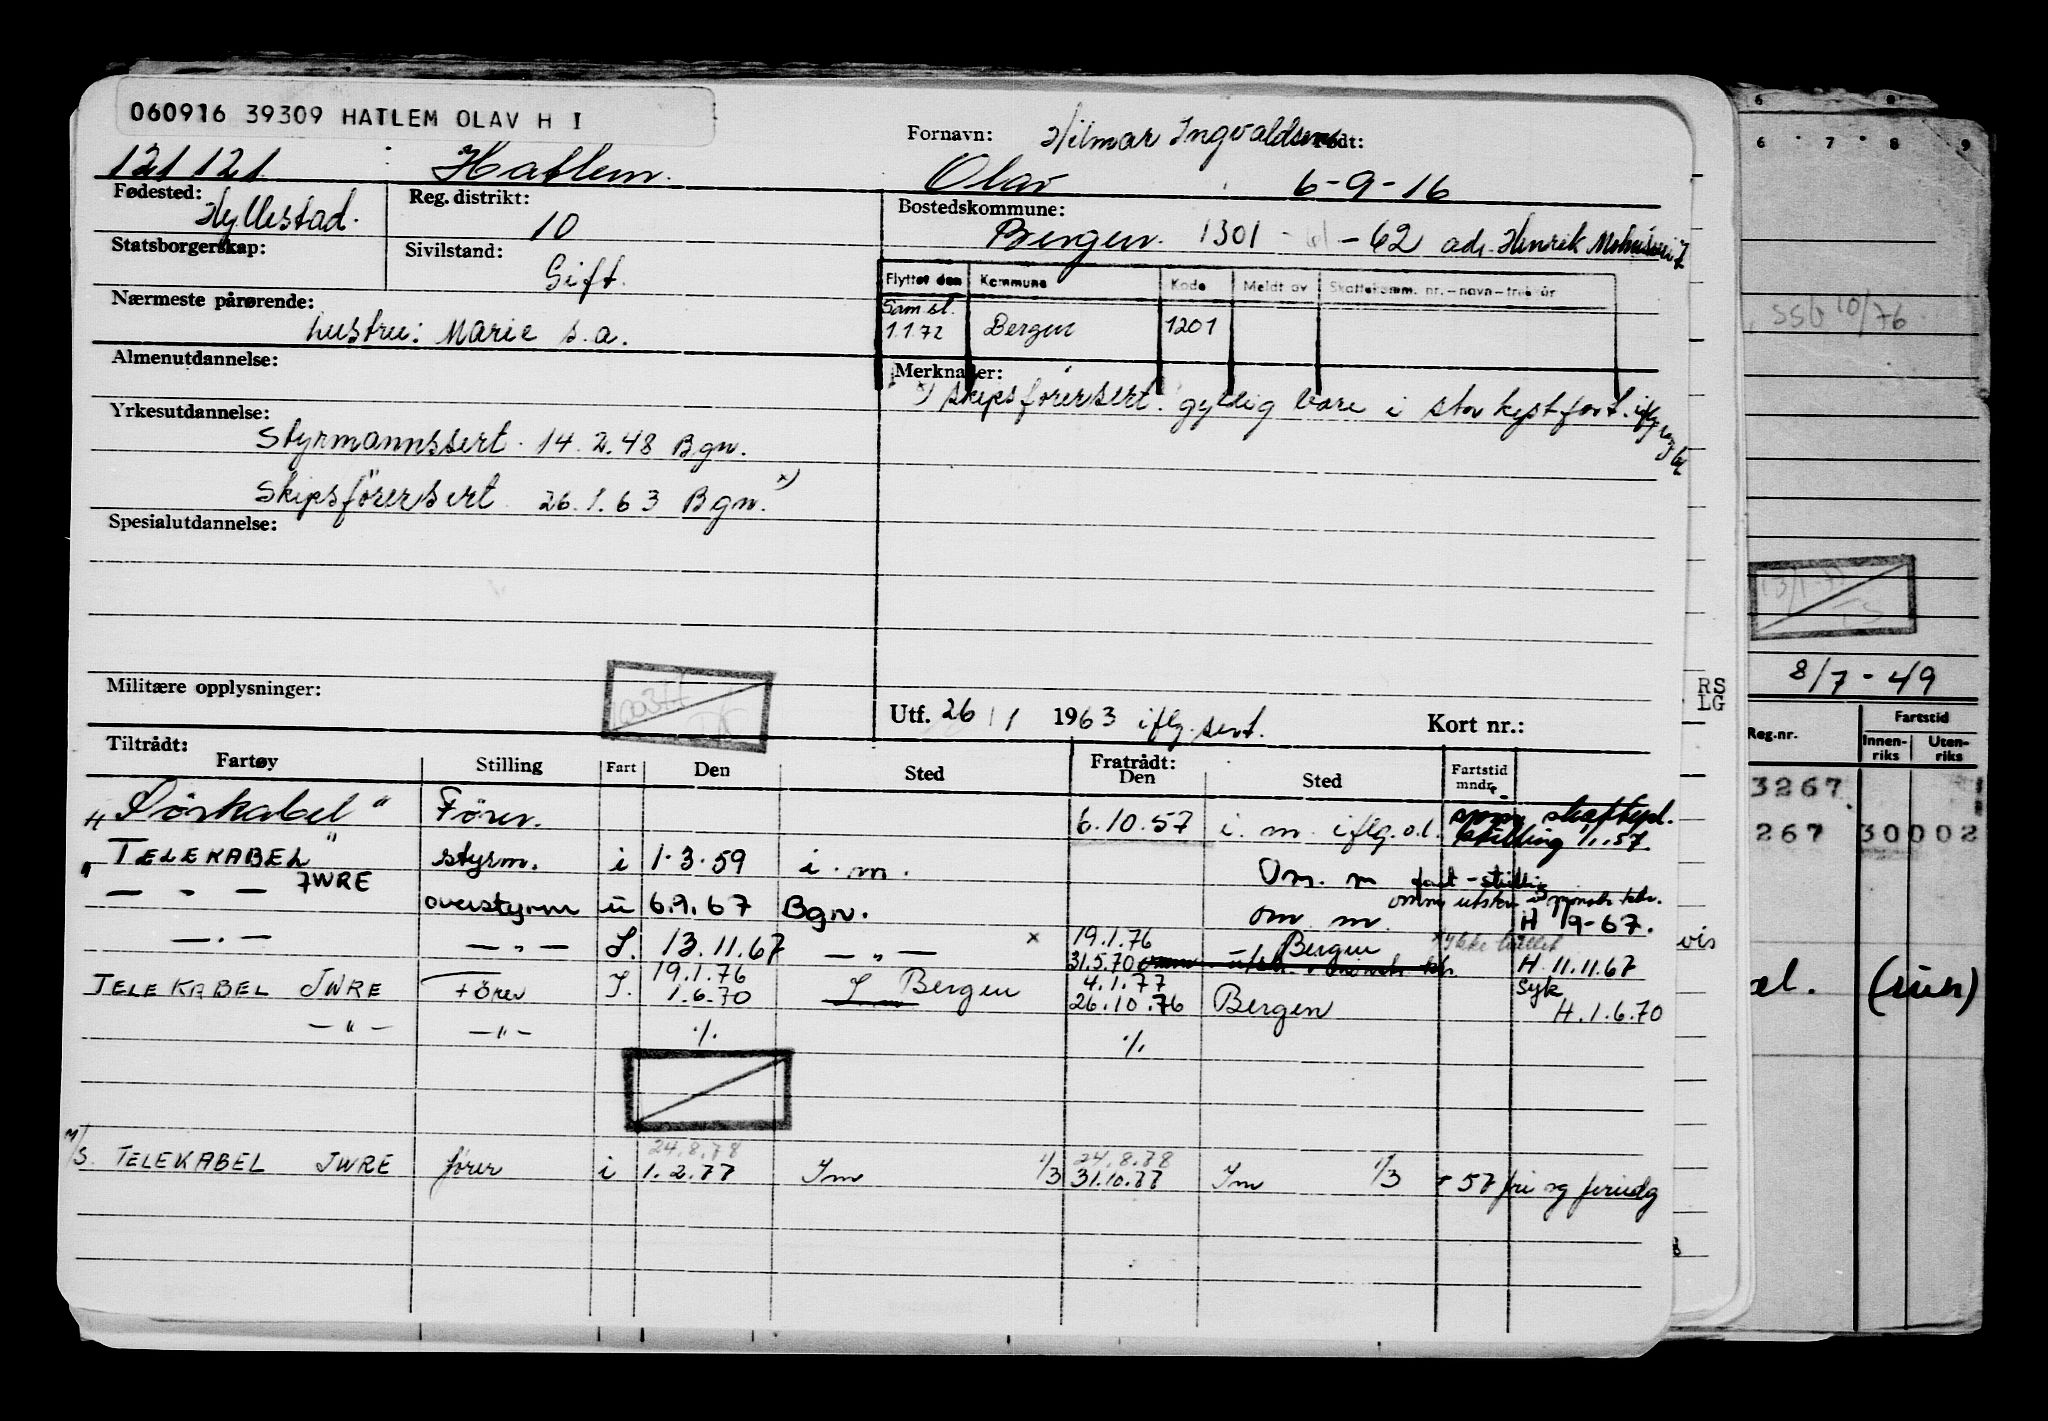 060916 39309 HATLEM OLAV H I
Fornavn: Hilmar Ingvaldsen Født:
121 121 Hatlem. Olav 6-9-16
Fødested: Hyllestad.
Reg. distrikt: 10
Bostedskommune: Bergen. 1301 - 62 adr. Henrik
Statsborgerskap:
Sivilstand: Gift.
Flyttet den Kommune Kode Meldt av Skattekomm. nr.-navn-trekkår
Sam sl. 1.1.72 Bergen 1201
Nærmeste pårørende: hustru: Marie s.a.
Almenutdannelse:
Merknader:
x) Skipsførersert. gyldig bare i stor kystfart. iflg.
Yrkesutdannelse:
Styrmannssert. 14.2.48 Bgn.
Skipsførersert 26.1.63 Bgn. x)
Spesialutdannelse:
Militære opplysninger:
Utf. 26/1 1963 iflg. sert.
Kort nr.:
Tiltrådt:
Fartøy Stilling Fart Den Sted Fratrådt: Den Sted Fartstid mndr.
"Sørkabel" Fører. 6.10.57 i. m. iflg. o.l. stilling 1/1.57
"TELEKABEL" styrm. i 1.3.59 i. m. Om. m
— " — JWRE overstyrm u 6.9.67 Bgn. om m. H 19-67.
— " — — " — I. 13.11.67 — " — x 19.1.76 31.5.70 Bergen H 11.11.67
TELEKABEL JWRE Fører I. 19.1.76 1.6.70 I m Bergen 4.1.77 26.10.76 Bergen Syk H.1.6.70
— " — — " — ./. ./.
M/S. TELEKABEL JWRE fører i 24.8.78 1.2.77 Im 1/3 24.8.78 31.10.77 Im 1/3 + 57 fri og feriedg
RS
LG
vis
6 8
6 7 8 9
SSB 10/76
8/7-49
Reg.nr. Fartstid
Innen-riks Uten-riks
3267
267 30002
el. (sun)